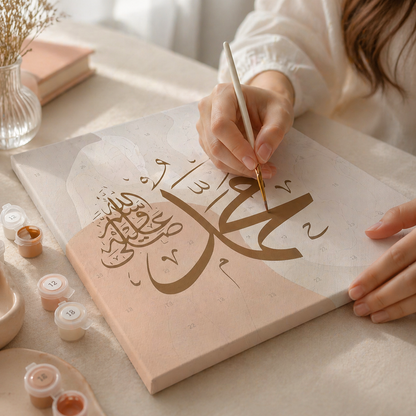 محمد
صلى الله عليه وسلم
12
18